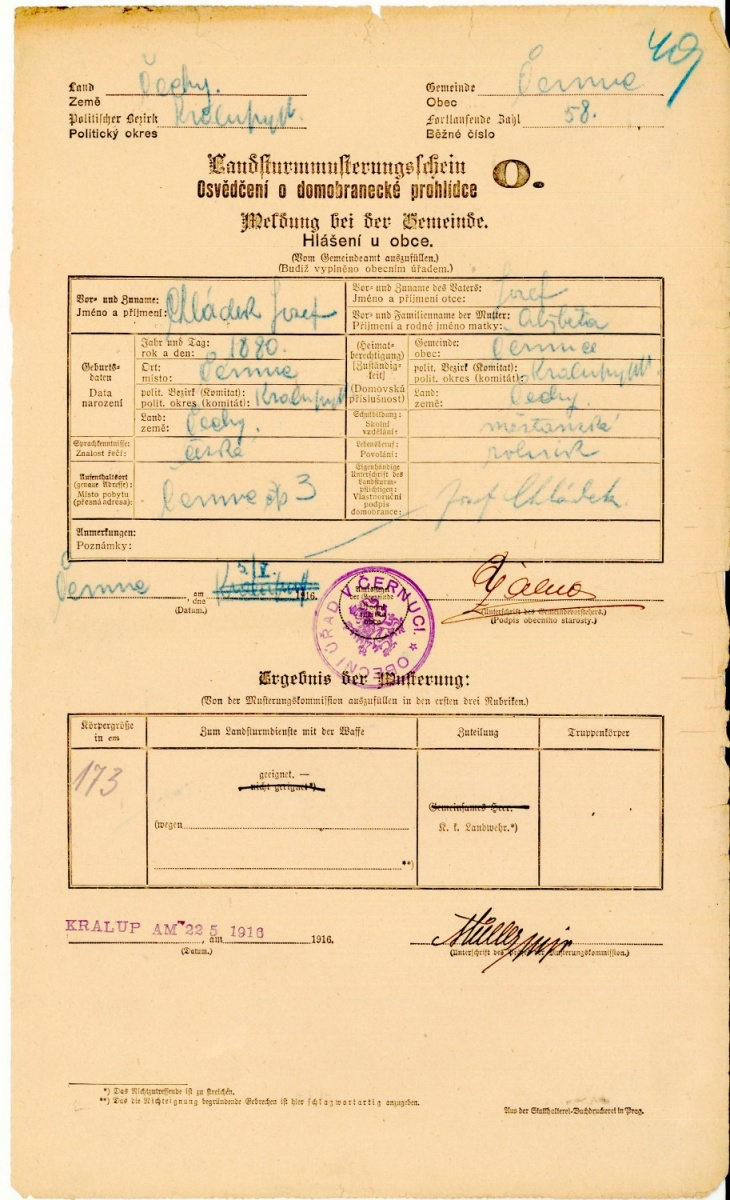 49
Land
Země
Čechy.
Gemeinde
Obec
Černuc
Politischer Bezirk
Politický okres
Kralupy n/V.
Fortlaufende Zahl
Běžné číslo
58.
Landsturmmusterungsschein
Osvědčení o domobranecké prohlídce
O.
Meldung bei der Gemeinde.
Hlášení u obce.
(Vom Gemeindeamt auszufüllen.)
(Budiž vyplněno obecním úřadem.)
Vor- und Zuname:
Jméno a příjmení:
Chládek Josef
Vor- und Zuname des Vaters:
Jméno a příjmení otce:
Josef
Vor- und Familienname der Mutter:
Příjmení a rodné jméno matky:
Alžběta
Geburts-
daten
Data
narození
Jahr und Tag:
rok a den:
1880.
Ort:
místo:
Černuc
polit. Bezirk (Komitat):
polit. okres (komitát):
Kralupy n/V
Land:
země:
Čechy.
(Heimat-
berechtigung)
[Zuständig-
keit]
(Domovská
příslušnost)
Gemeinde:
obec:
Černuc
polit. Bezirk (Komitat):
polit. okres (komitát):
Kralupy n/V.
Land:
země:
Čechy.
Sprachkenntnisse:
Znalost řečí:
česká
Schulbildung:
Školní
vzdělání:
měšťanská
Lebensberuf:
Povolání:
rolník
Aufenthaltsort
(genaue Adresse):
Místo pobytu
(přesná adresa):
Černuc čp 3
Eigenhändige
Unterschrift des
Landsturm-
pflichtigen:
Vlastnoruční
podpis
domobrance:
Josef Chládek.
Anmerkungen:
Poznámky:
Černuc
am
dne
5/V
1916.
(Datum.)
OBECNÍ ÚŘAD V ČERNUCI.
Amtssiegel
der Gemeinde
(Unterschrift des Gemeindevorstehers.)
(Podpis obecního starosty.)
Ergebnis der Musterung:
(Von der Musterungskommission auszufüllen in den ersten drei Rubriken.)
Körpergröße
in cm
Zum Landsturmdienste mit der Waffe
Zuteilung
Truppenkörper
173
geeignet. —
nicht geeignet*)
(wegen
**)
Gemeinsames Heer.
K. k. Landwehr.*)
KRALUP AM 22 5 1916
, am 1916.
(Datum.)
Müller mjr
(Unterschrift des Präses der Musterungskommission.)
*) Das Nichtzutreffende ist zu streichen.
**) Das die Nichteignung begründende Gebrechen ist hier schlagwortartig anzugeben.
Aus der Statthalterei-Buchdruckerei in Prag.